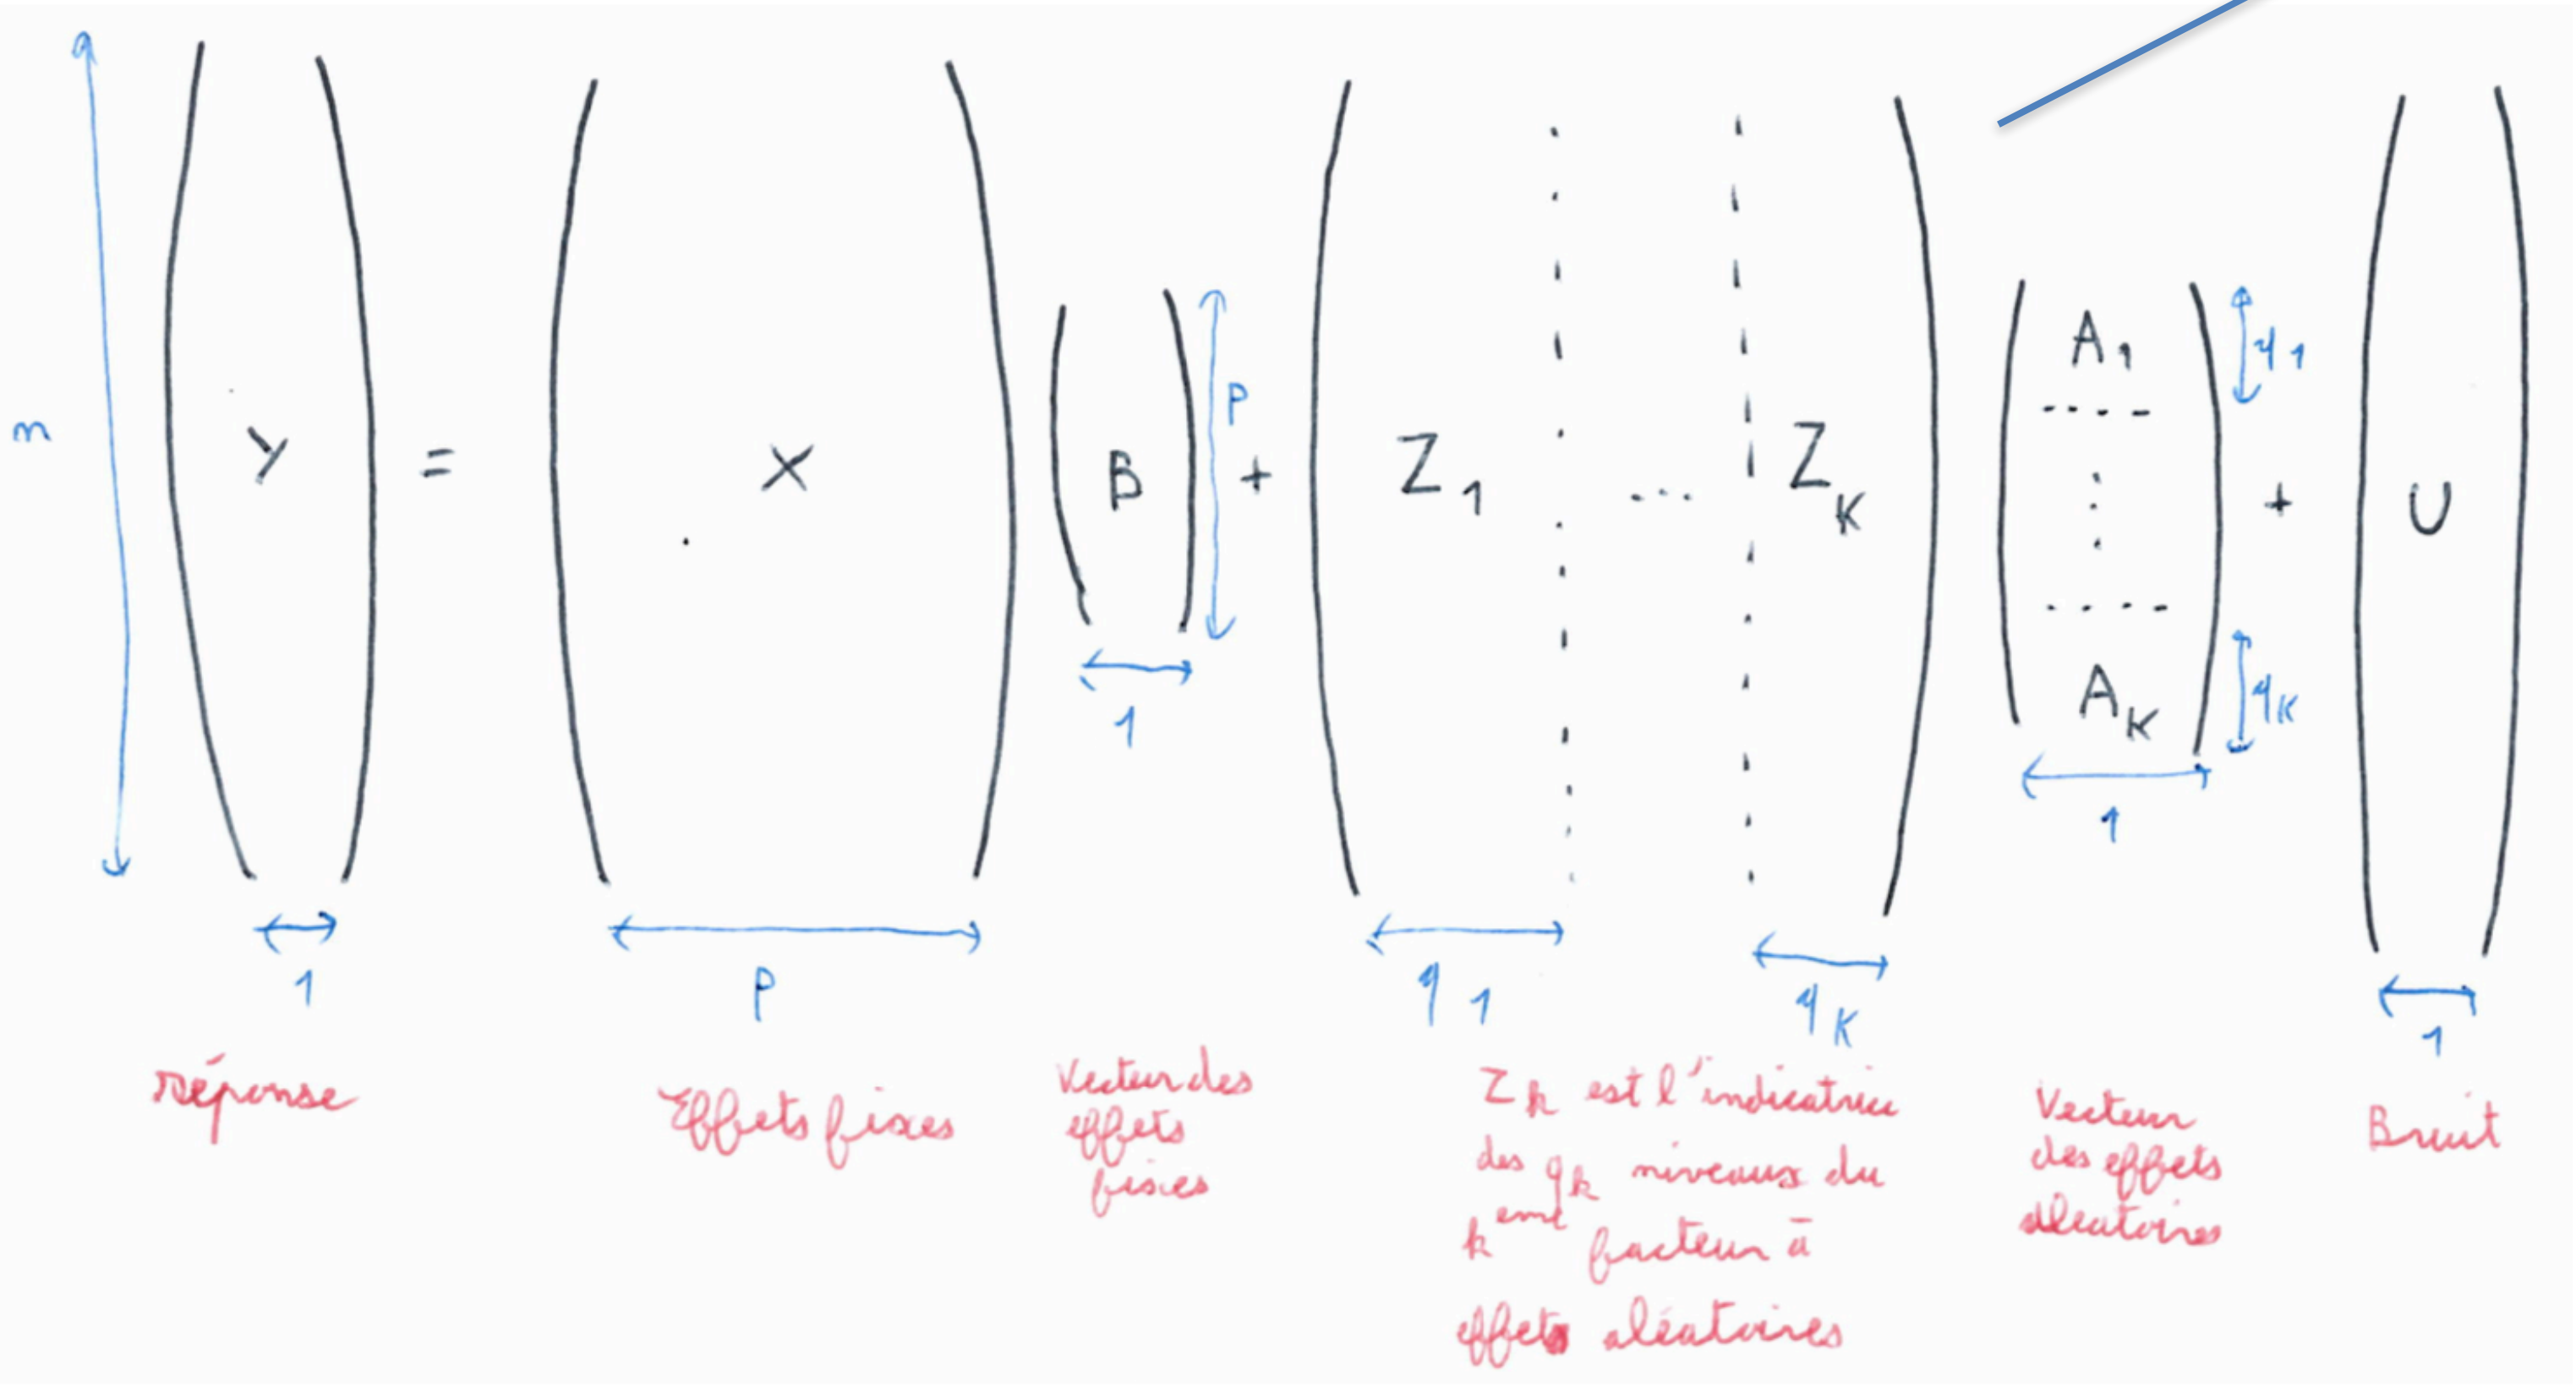 n
Y = X B + Z1 ... ZK A1 AK + U
P
q1
qK
1
1
1 P q1 qK 1
réponse
Effets fixes
Vecteur des
effets
fixes
Zk est l'indicatrice
des qk niveaux du
k eme facteur à
effets aléatoires
Vecteur
des effets
aléatoires
Bruit